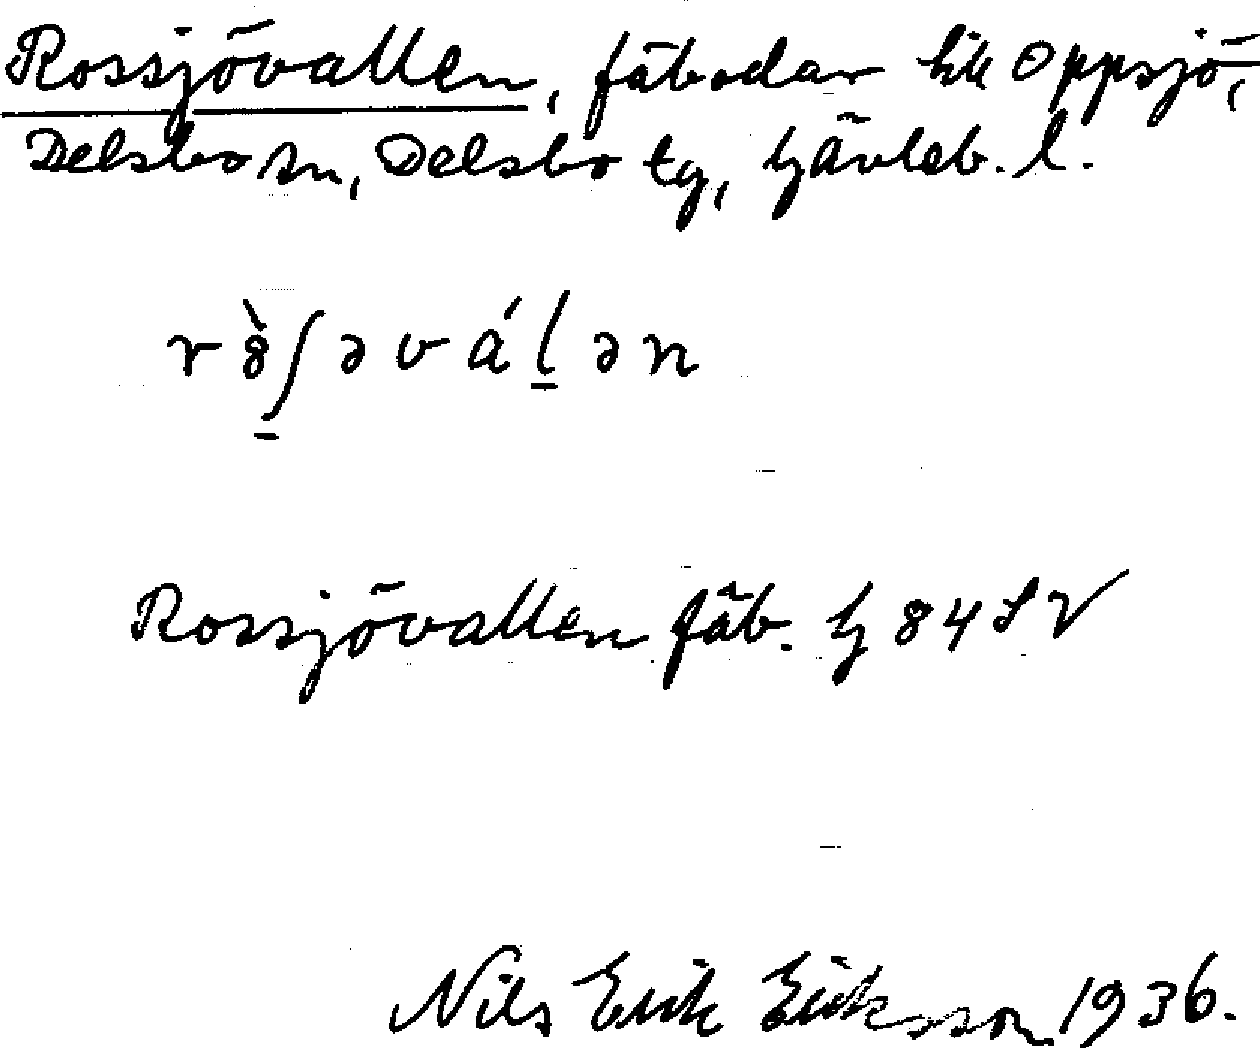 Rossjövallen, fäbodar till Oppsjö,
Delsbo sn, Delsbo tg, Gävleb. l.
r ò̱ʃ ə v á l̠ ə n
Rossjövallen fäb. G 84 SV
Nils Erik Eriksson 1936.